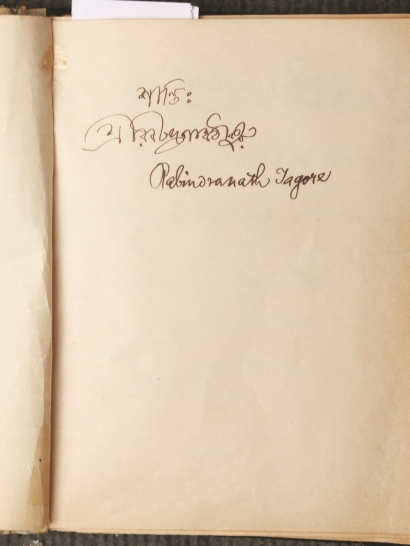 শান্তিঃ
শ্রীরবীন্দ্রনাথ ঠাকুর
Rabindranath Tagore